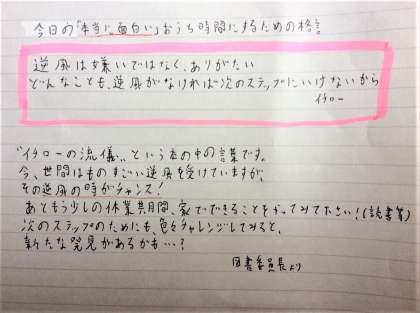 今日の「本当に面白い」おうち時間にするための格言
逆風は嫌いではなく、ありがたい
どんなことも、逆風がなければ次のステップにいけないから
イチロー
"イチローの流儀"という本の中の言葉です。
今、世間はものすごい逆風を受けていますが、
その逆風の時がチャンス!
あともう少しの休業期間、家でできることをやってみて下さい!(読書等)
次のステップのためにも、色々チャレンジしてみると、
新たな発見があるかも…?
図書委員長より